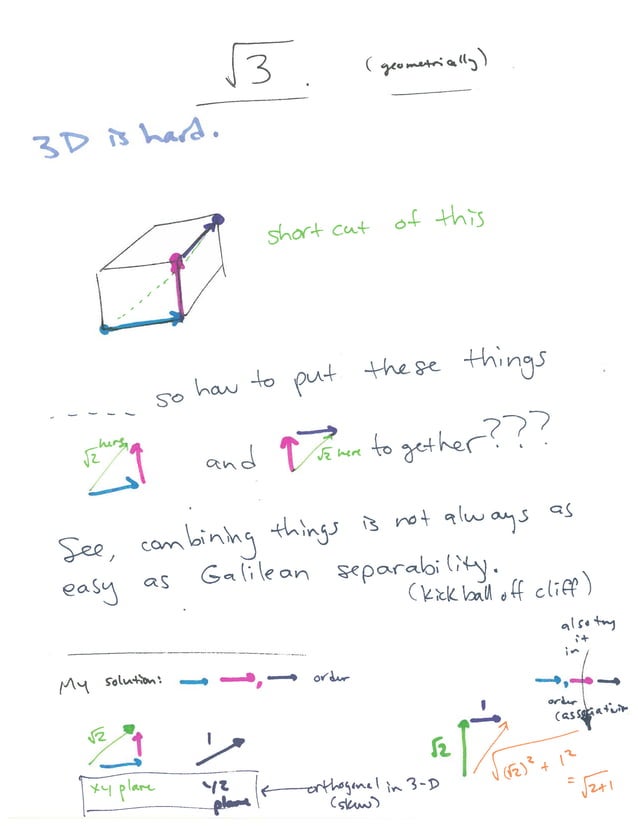 √3. (geometrially)
3D is hard.
short cut of this
----- so how to put these things
√2 here and √2 here to gether???
See, combining things is not always as
easy as Galilean separability.
(kick ball off cliff)
also try
it
in
My solution: → →, → order
→, → →
order
√2
1
xy plane
YZ
plane
orthogonal in 3-D
(skew)
√2
1
√(√2)² + 1²
= √2+1